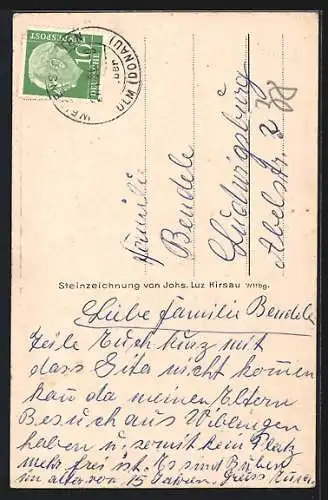 10
DEUTSCHE BUNDESPOST
ULM (DONAU)
Familie
Bendele
Ludwigsburg
Abelstr. 3
Steinzeichnung von Johs. Luz Hirsau Wttbg.
Liebe Familie Bendele
Teile Euch kurz mit
dass Gita nicht kommen
kan da meinen Eltern
Besuch aus Wiblingen
haben u. somit kein Platz
mehr frei ist. Es sind Buben
im alter von 15 Jahren. Gruss